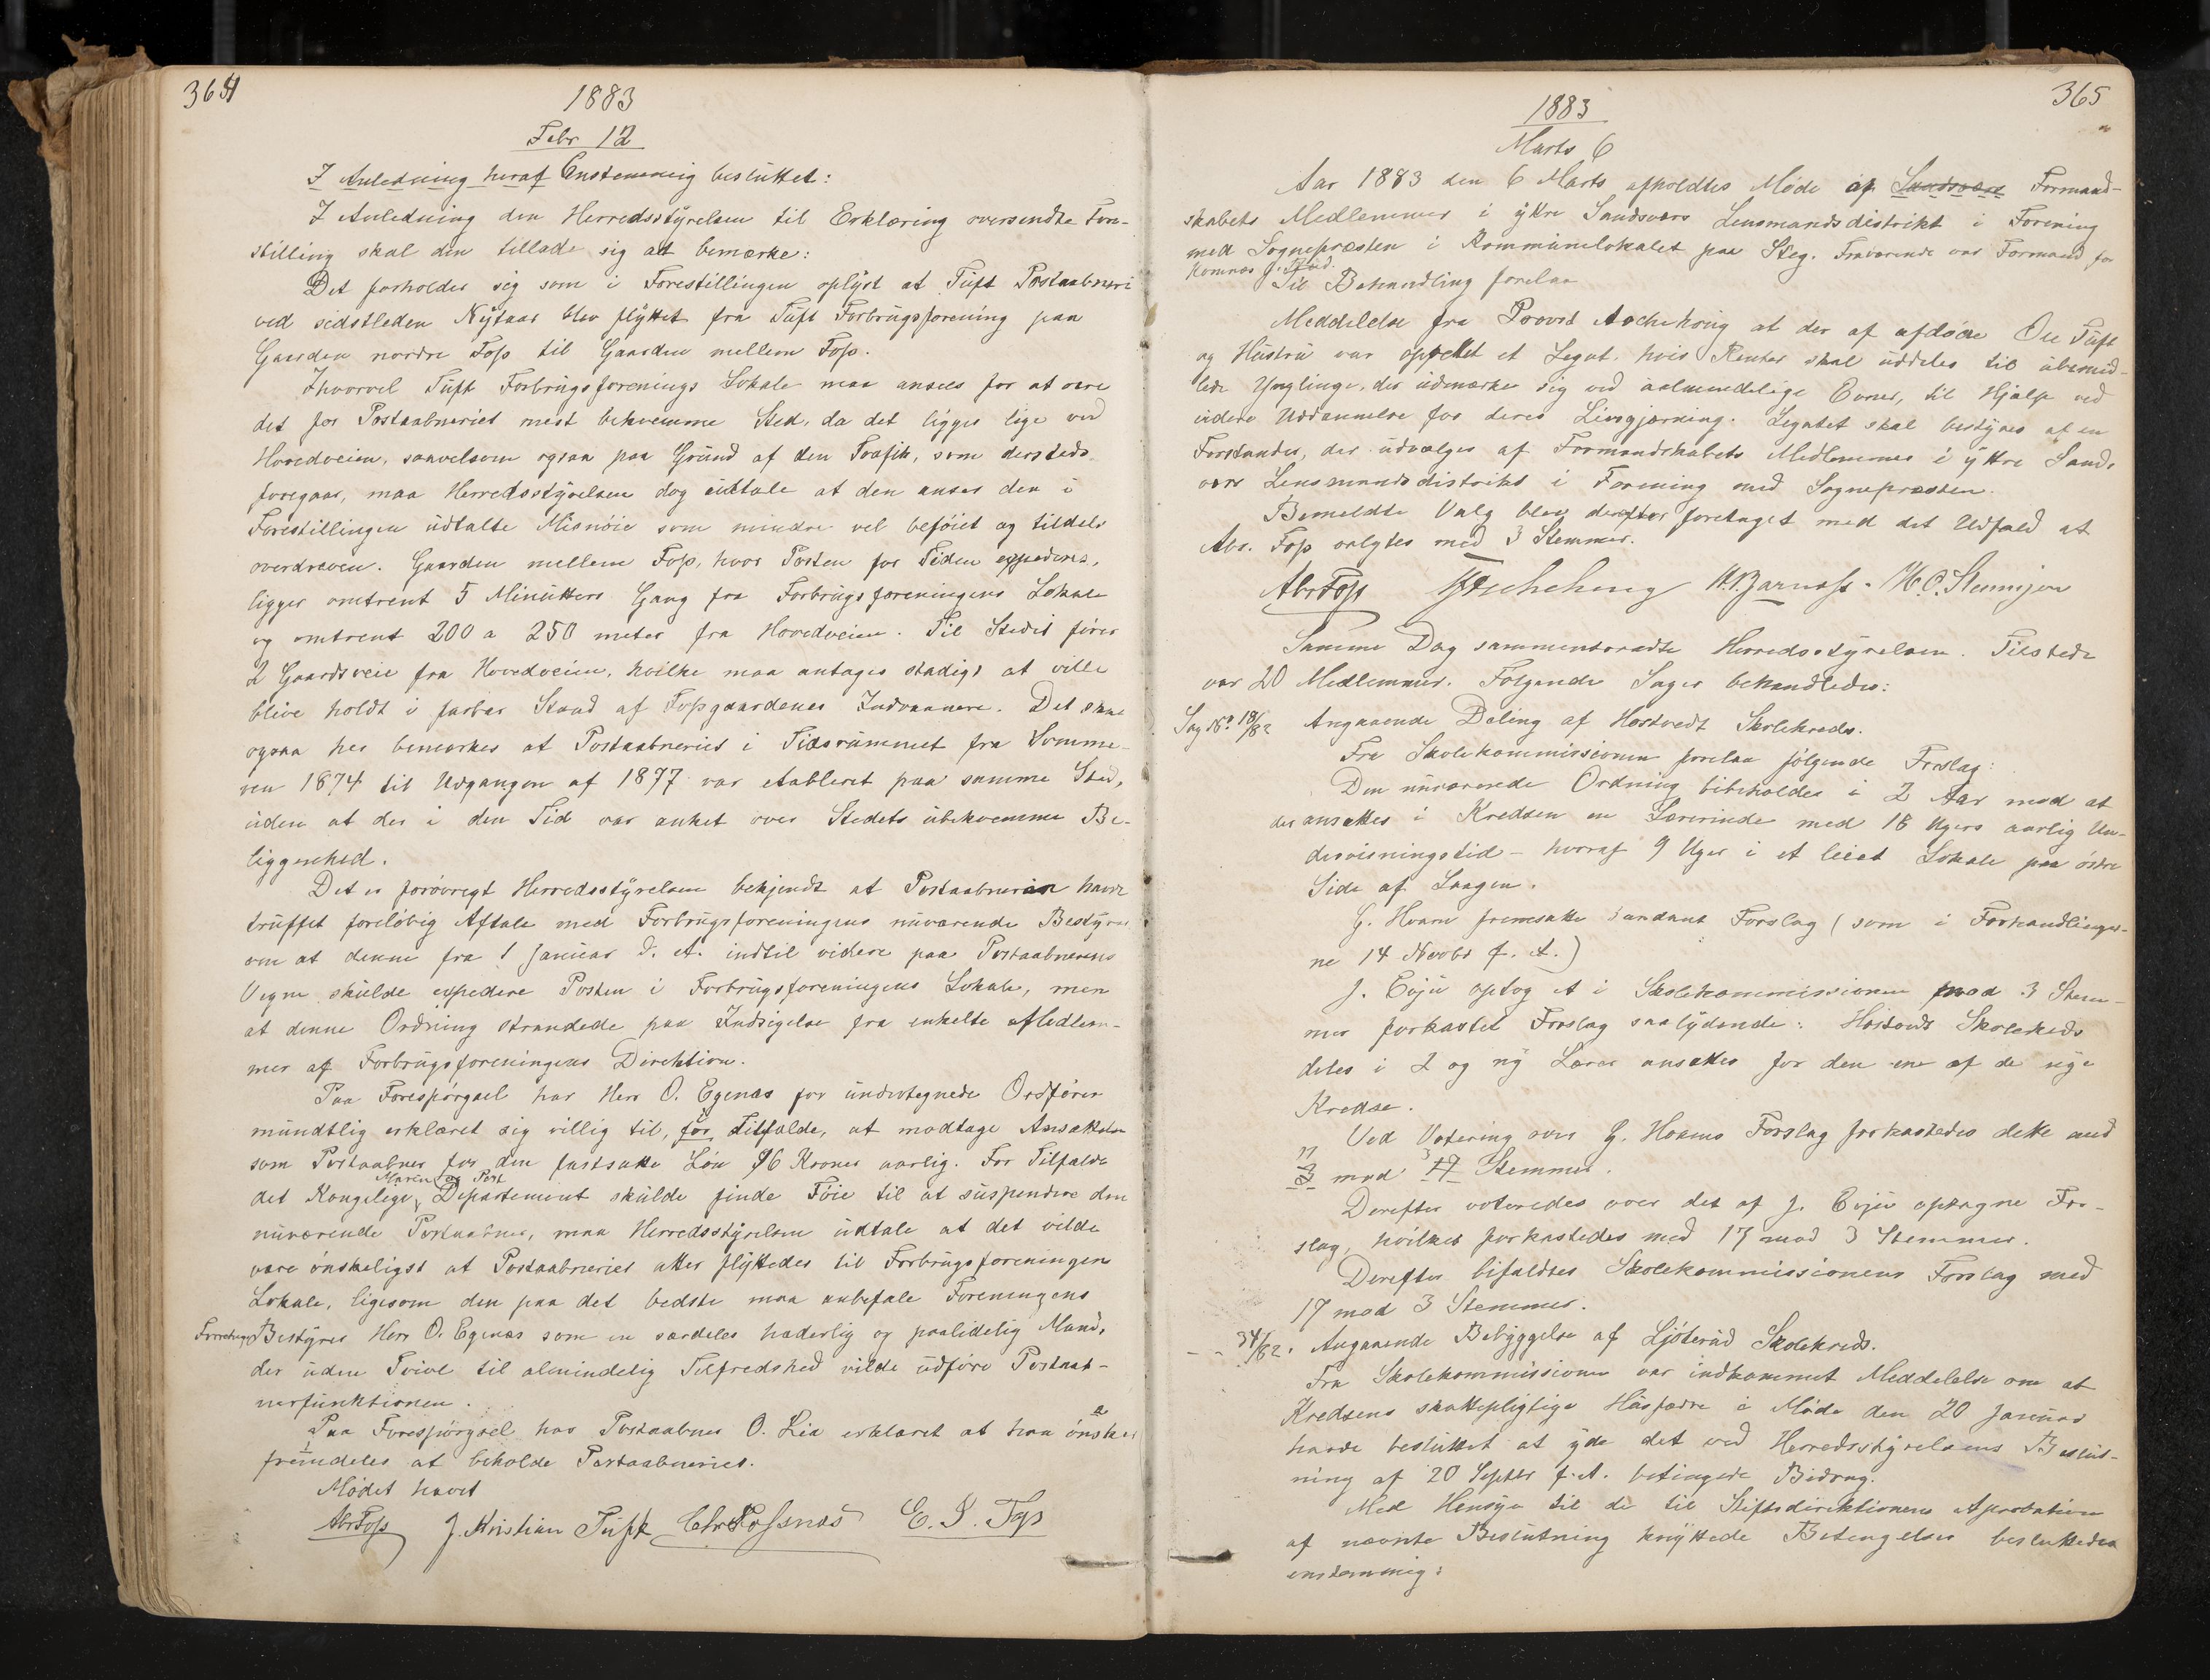 364
1883
Febr 12
I Anledning heraf Enstemmig besluttet:
I Anledning den Herredsstyrelsen til Erklæring oversendte Fore-
stilling skal den tillade sig at bemærke:
Det forholder sig som i Forestillingen oplyst at Tuft Postaabneri
ved sidstleden Nytaar blev flyttet fra Tuft Forbrugsforening paa
Gaarden nordre Foss til Gaarden mellem Foss.
Ihvorvel Tuft Forbrugsforenings Lokale maa ansees for at være
det for Postaabneriet mest bekvemme Sted, da det ligger lige ved
Hovedveien, saavelsom ogsaa paa Grund af den Trafik, som dersteds
foregaar, maa Herredsstyrelsen dog udtale at den anser den i
Forestillingen udtalte Misnøie som mindre vel beføiet og tildels
overdreven. Gaarden mellem Foss, hvor Posten for Tiden expederes,
ligger omtrent 5 Minutters Gang fra Forbrugsforeningens Lokale
og omtrent 200 a 250 meter fra Hovedveien. Til Stedet fører
2 Gaardsveie fra Hovedveien, hvilke maa antages stadigt at ville
blive holdt i farbar Stand af Fossgaardenes Indvaanere. Det skal
ogsaa her bemærkes at Postaabneriet i Tidsrummet fra Somme-
ren 1874 til Udgangen af 1877 var etableret paa samme Sted,
uden at der i den Tid var anket over Stedets ubekvemme Be-
liggenhed.
Det er forøvrigt Herredsstyrelsen bekjendt at Postaabneren havde
truffet foreløbig Aftale med Forbrugsforeningens nuværende Bestyrer
om at denne fra 1 Januar d. A. indtil videre paa Postaabnerens
Vegne skulde expedere Posten i Forbrugsforeningens Lokale, men
at denne Ordning strandede paa Indsigelse fra enkelte Medlem-
mer af Forbrugsforeningens Direktion.
Paa Forespørgsel har Herr O. Egenæs for undertegnede Ordfører
mundtlig erklæret sig villig til, for Tilfælde, at modtage Ansættelse
som Postaabner for den fastsatte Løn 96 Kroner aarlig. For Tilfælde
Marin og Post
det Kongelige Departement skulde finde Føie til at suspendere den
nuværende Postaabner, maa Herredsstyrelsen udtale at det vilde
være ønskeligst at Postaabneriet atter flyttedes til Forbrugsforeningen
Lokale, ligesom den paa det bedste maa anbefale Foreningens
Forretnings Bestyrer Herr O. Egenæs som en særdeles hæderlig og paalidelig Mand,
der uden Tvivl til almindelig Tilfredshed vilde udføre Postaab-
nerfunktionen.
Paa Forespørgsel har Postaabner O. Lia erklæret at han ønsker
fremdeles at beholde Postaabneriet.
Mødet hævet
AbrFoss J. Kristian Tufte Chr Fossnæs E. S. Foss
365
1883
Marts 6
Aar 1883 den 6 Marts afholdtes Møde af Sandsværd Formand-
skabets Medlemmer i ydre Sandsværs Lensmandsdistrikt i Forening
med Sognepræsten i Kommunelokalet paa Steg. Fraværende var Formand for
Komnæs
Til Behandling forelaa
Meddelelse fra Provst Aschehoug at der af afdøde Ole Tuft
og Hustru var oprettet et Legat, hvis Renter skal uddeles til ubemid-
lede Ynglinge, der udmærke sig ved ualmindelige Evner, til Hjælp ved
videre Uddannelse for deres Livsgjerning. Legatet skal bestyres af en
Forstander, der udvælges af Formandskabets Medlemmer i ydre Sands-
vær Lensmandsdistrikt i Forening med Sognepræsten.
Bemeldte Valg blev derefter foretaget med det Udfald at
Abr. Foss valgtes med 3 Stemmer.
AbrFoss Aschehoug H. C. Stemsjen
Samme Dag sammentraadte Herredsstyrelsen. Tilstede
var 20 Medlemmer. Følgende Sager behandledes:
Sag No 18/82 Angaaende Deling af Hostvedt Skolekreds.
Fra Skolekommissionen forelaa følgende Forslag:
Den nuværende Ordning bibeholdes i 2 Aar mod at
der ansættes i Kredsen en Lærerinde med 18 Ugers aarlig Un-
dervisningstid – hvoraf 9 Uger i et leiet Lokale paa østre
Side af Laagen.
G. Hvam fremsatte saadant Forslag (som i Forhandlinger-
ne 14 Novbr f. A.)
J. Evju optog et i Skolekommissionen mod 3 Stem-
mer forkastet Forslag saalydende: Hostvedt Skolekreds
deles i 2 og ny Lærer ansættes for den ene af de nye
Kredse.
Ved Votering over G. Hvams Forslag forkastedes dette med
17 mod 3 Stemmer.
Derefter voteredes over det af J. Evju optagne For-
slag, hvilket forkastedes med 17 mod 3 Stemmer.
Derefter bifaldtes Skolekommissionens Forslag med
17 mod 3 Stemmer.
- - 34/82. Angaaende Bebyggelse af Ljøterud Skolekreds.
Fra Skolekommissionen var indkommet Meddelelse om at
Kredsens skattepligtige Husfædre i Møde den 20 Januar
havde besluttet at yde det ved Herredsstyrelsens Beslut-
ning af 20 Septbr f. A. betingede Bidrag.
Med Hensyn til de til Stiftsdirektionens Aprobation
af nævnte Beslutning knyttede Betingelser besluttedes
enstemmig: